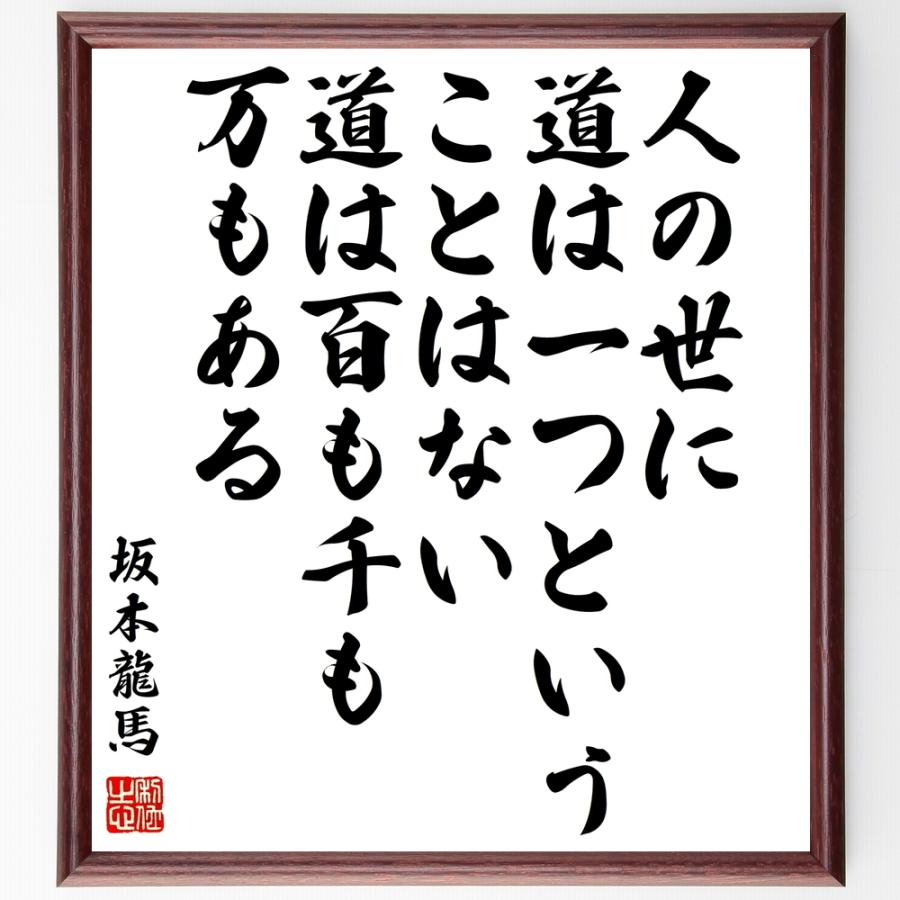 人の世に
道は一つという
ことはない
道は百も千も
万もある
坂本龍馬